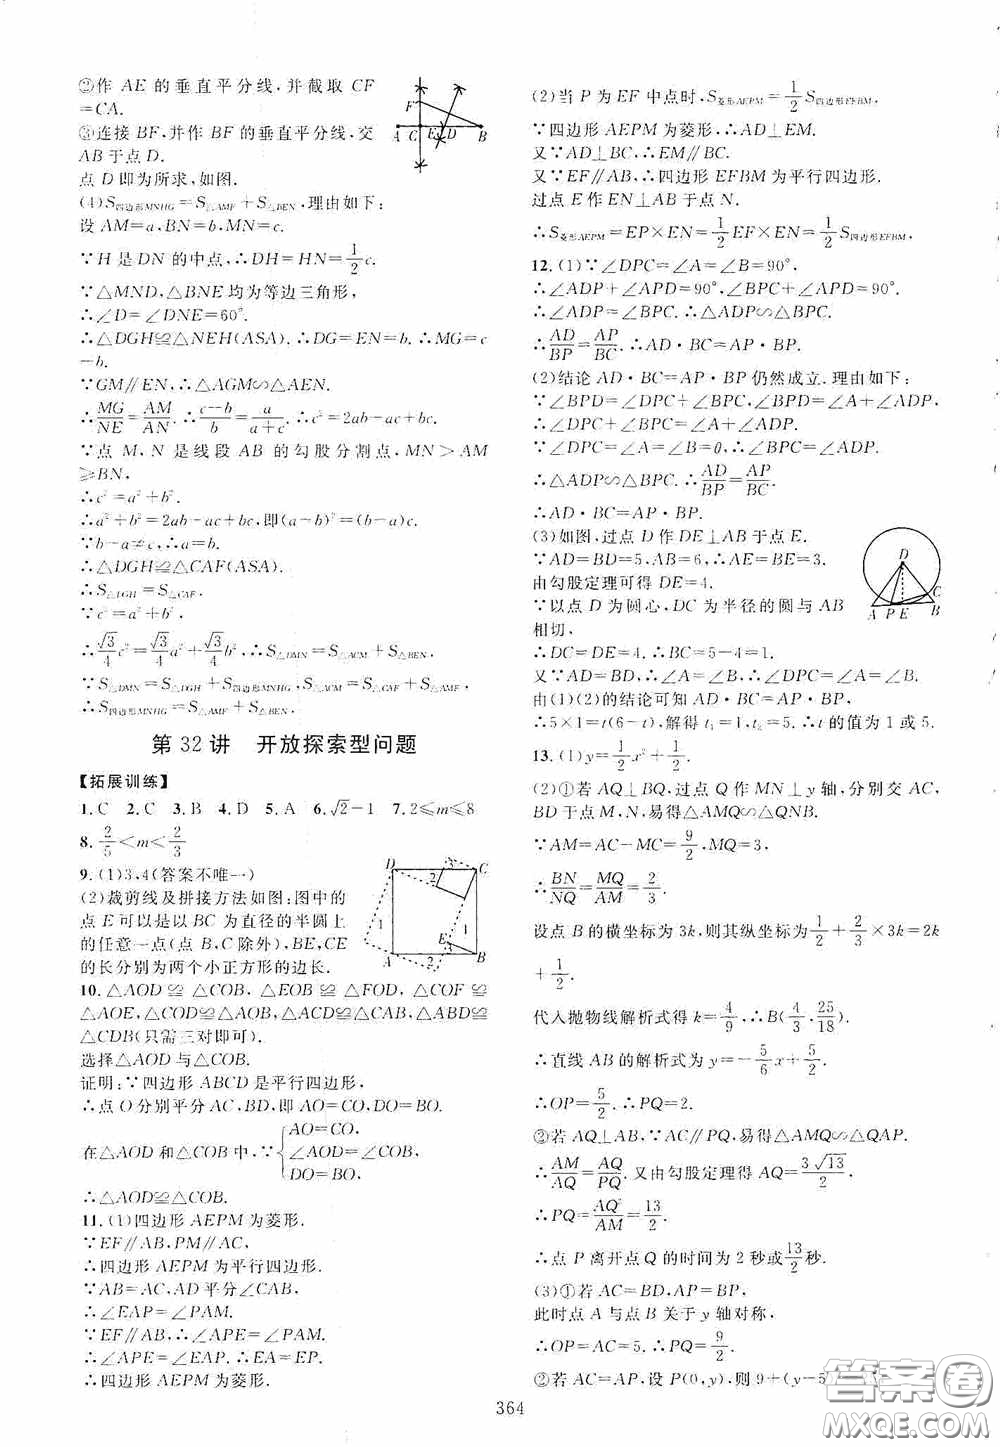 ②作 AE 的垂直平分线,并截取 CF
=CA.
③连接 BF,并作 BF 的垂直平分线,交
AB 于点 D.
点 D 即为所求,如图.
F
A C E D B
(4)S四边形MNHG=S△AMF+S△BEN,理由如下:
设 AM=a,BN=b,MN=c.
∵H 是 DN 的中点,∴DH=HN=1/2c.
∵△MND,△BNE 均为等边三角形,
∴∠D=∠DNE=60°.
∴△DGH≌△NEH(ASA).∴DG=EN=b.∴MG=c
-b.
∵GM∥EN,∴△AGM∽△AEN.
∴MG/NE=AM/AN.∴(c-b)/b=a/(a+c).∴c²=2ab-ac+bc.
∵点 M,N 是线段 AB 的勾股分割点,MN>AM
≥BN,
∴c²=a²+b².
∴a²+b²=2ab-ac+bc,即(a-b)²=(b-a)c.
∵b-a≠c,∴a=b.
∴△DGH≌△CAF(ASA).
∴S△DGH=S△CAF.
∵c²=a²+b²,
∴√3/4c²=√3/4a²+√3/4b².∴S△DMN=S△ACM+S△BEN.
∵S△DMN=S△DGH+S四边形MNHG,S△ACM=S△CAF+S△AMF,
∴S四边形MNHG=S△AMF+S△BEN.
第 32 讲 开放探索型问题
【拓展训练】
1.C 2.C 3.B 4.D 5.A 6.√2-1 7.2≤m≤8
8.2/5<m<2/3
9.(1)3,4(答案不唯一)
(2)裁剪线及拼接方法如图:图中的
点 E 可以是以 BC 为直径的半圆上
的任意一点(点 B,C 除外),BE,CE
的长分别为两个小正方形的边长.
D 3 C
2
1 1
E
3
A 2 B
10.△AOD≌△COB,△EOB≌△FOD,△COF≌
△AOE,△COD≌△AOB,△ACD≌△CAB,△ABD≌
△CDB(只需三对即可).
选择△AOD 与△COB.
证明:∵四边形 ABCD 是平行四边形,
∴点 O 分别平分 AC,BD,即 AO=CO,DO=BO.
在△AOD 和△COB 中,∵{AO=CO,
∠AOD=∠COB,
DO=BO.
∴△AOD≌△COB.
11.(1)四边形 AEPM 为菱形.
∵EF∥AB,PM∥AC,
∴四边形 AEPM 为平行四边形.
∵AB=AC,AD 平分∠CAB,
∴∠EAP=∠PAM.
∵EF∥AB,∴∠APE=∠PAM.
∴∠EAP=∠APE.∴EA=EP.
∴四边形 AEPM 为菱形.
(2)当 P 为 EF 中点时,S菱形AEPM=1/2S四边形EFBM,
∵四边形 AEPM 为菱形,∴AD⊥EM.
又∵AD⊥BC,∴EM∥BC.
又∵EF∥AB,∴四边形 EFBM 为平行四边形.
过点 E 作 EN⊥AB 于点 N.
∴S菱形AEPM=EP×EN=1/2EF×EN=1/2S四边形EFBM.
12.(1)∵∠DPC=∠A=∠B=90°,
∴∠ADP+∠APD=90°,∠BPC+∠APD=90°.
∴∠ADP=∠BPC.∴△ADP∽△BPC.
∴AD/BP=AP/BC.∴AD·BC=AP·BP.
(2)结论 AD·BC=AP·BP 仍然成立.理由如下:
∵∠BPD=∠DPC+∠BPC,∠BPD=∠A+∠ADP,
∴∠DPC+∠BPC=∠A+∠ADP.
∵∠DPC=∠A=∠B=θ,∴∠BPC=∠ADP.
∴△ADP∽△BPC.∴AD/BP=AP/BC.
∴AD·BC=AP·BP.
(3)如图,过点 D 作 DE⊥AB 于点 E.
∵AD=BD=5,AB=6,∴AE=BE=3.
由勾股定理可得 DE=4.
∵以点 D 为圆心,DC 为半径的圆与 AB
相切,
D
C
A P E B
∴DC=DE=4.∴BC=5-4=1.
又∵AD=BD,∴∠A=∠B.∴∠DPC=∠A=∠B.
由(1)(2)的结论可知 AD·BC=AP·BP.
∴5×1=t(6-t),解得 t₁=1,t₂=5.∴t 的值为 1 或 5.
13.(1)y=1/2x²+1/2.
(2)①若 AQ⊥BQ,过点 Q 作 MN⊥y 轴,分别交 AC,
BD 于点 M,N,易得△AMQ∽△QNB.
∵AM=AC-MC=9/2,MQ=3,
∴BN/NQ=MQ/AM=2/3.
设点 B 的横坐标为 3k,则其纵坐标为1/2+2/3×3k=2k
+1/2.
代入抛物线解析式得 k=4/9,∴B(4/3,25/18).
∴直线 AB 的解析式为 y=-5/6x+5/2.
∴OP=5/2.∴PQ=2.
②若 AQ⊥AB,∵AC∥PQ,易得△AMQ∽△QAP.
∴AM/AQ=AQ/PQ.又由勾股定理得 AQ=3√13/2.
∴PQ=AQ²/AM=13/2.
∴点 P 离开点 Q 的时间为 2 秒或13/2秒.
(3)①若 AC=BD,AP=BP,
此时点 A 与点 B 关于 y 轴对称,
∴OP=AC=5.∴PQ=9/2.
②若 AC=AP,设 P(0,y),则 9+(y-5
364
答案圈
MXQE.COM